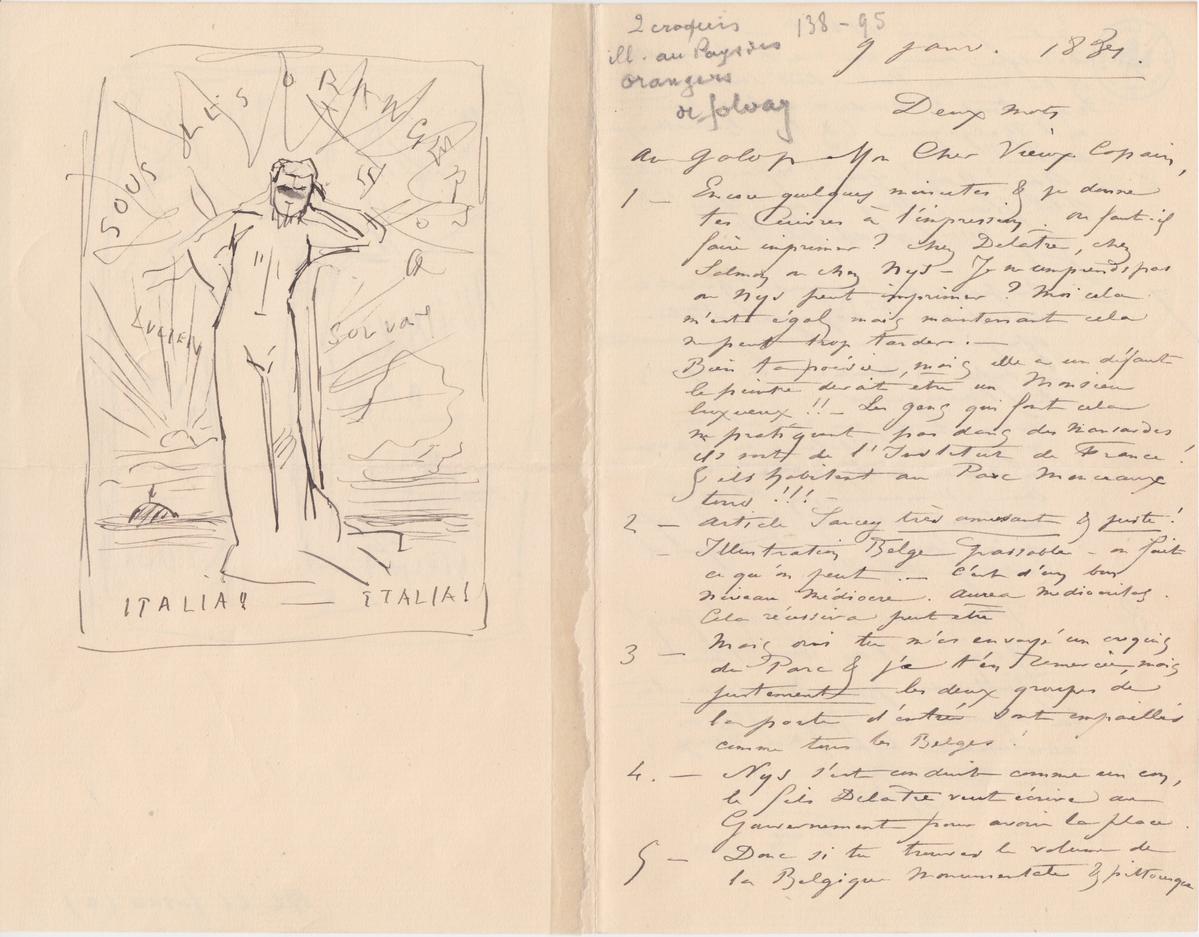 SOUS LES ORANGERS
LUCIEN
SOLVAY
ITALIA!! — ITALIA!
2 croquis 138-95
ill. au Pays des
orangers
de Solvay
9 janv. 18
Deux mots
au galop Mon Cher Vieux Copain,
1 — Encore quelques minutes & je donne
tes Cuivres à l'impression. où faut-il
faire imprimer? chez Delâtre, chez
Salmon ou chez Nys — Je ne comprends pas
où Nys peut imprimer? Moi cela
m'est égal, mais maintenant cela
ne peut trop tarder. —
Bien ta poésie, mais elle a un défaut
le peintre devrait être un Monsieur
luxueux!! — Les gens qui font cela
ne pratiquent pas dans des mansardes
ils sont de l'Institut de France!
& ils habitent au Parc Monceaux
tous!!!
2 — Article Sarcey très amusant & juste!
— Illustration Belge passable — on fait
ce qu'on peut. — C'est d'un bon
niveau médiocre. Aurea mediocritas.
Cela réussira peut être
3 — Mais oui tu m'as envoyé un croquis
du Parc & je t'en remercie, mais
justement les deux groupes de
la porte d'entrée sont empaillés
comme tous les Belges!
4. — Nys s'est conduit comme un con,
le fils Delâtre veut écrire au
Gouvernement pour avoir la place.
5 — Donc si tu trouves le volume de
la Belgique Monumentale & pittoresque